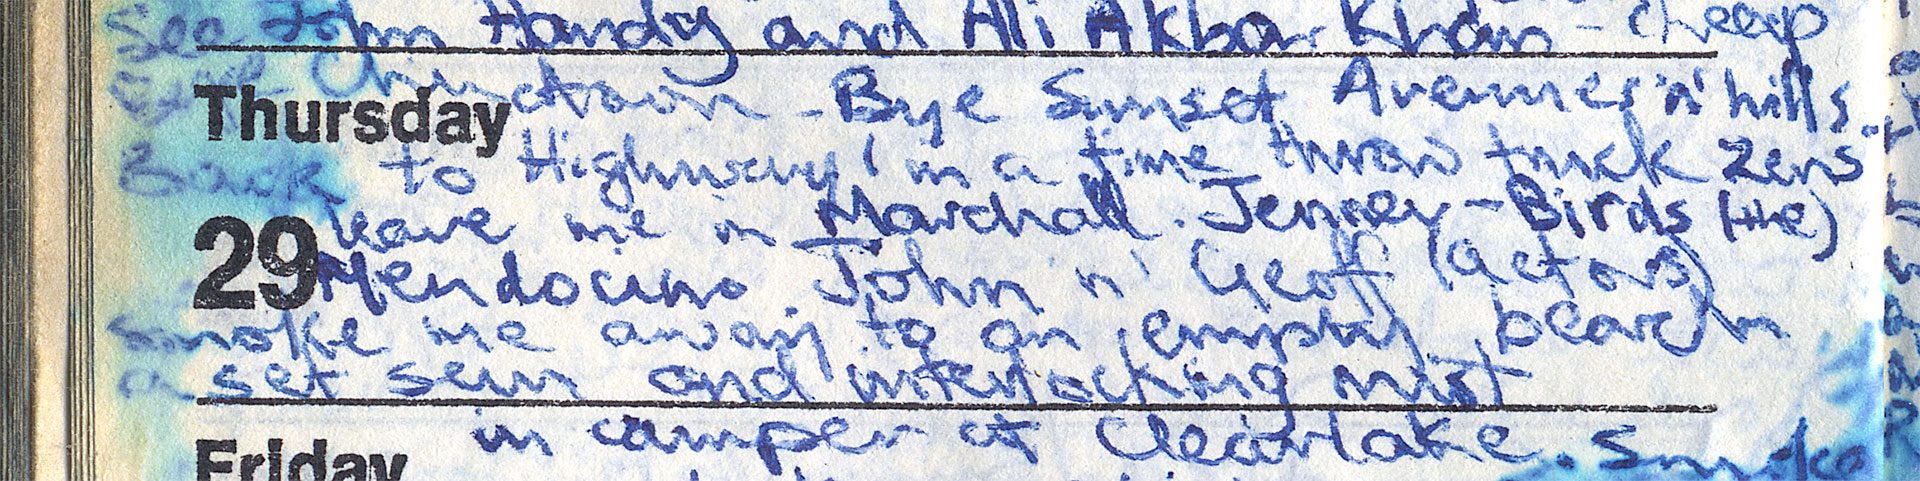 See John Handy and Ali Akbar Khan - cheap
Chinatown - Bye Sunset Avenues 'n' hills.
Thursday
Back to Highway 1 in a time throw truck Zens
29
leave me in Marchall. Jenney - Birds (the)
Mendocino. John n' Geoff (Actors)
smoke me away to an empty beach in
a set sun and interlocking mist
in camper at Clearlake. Smoke
Friday